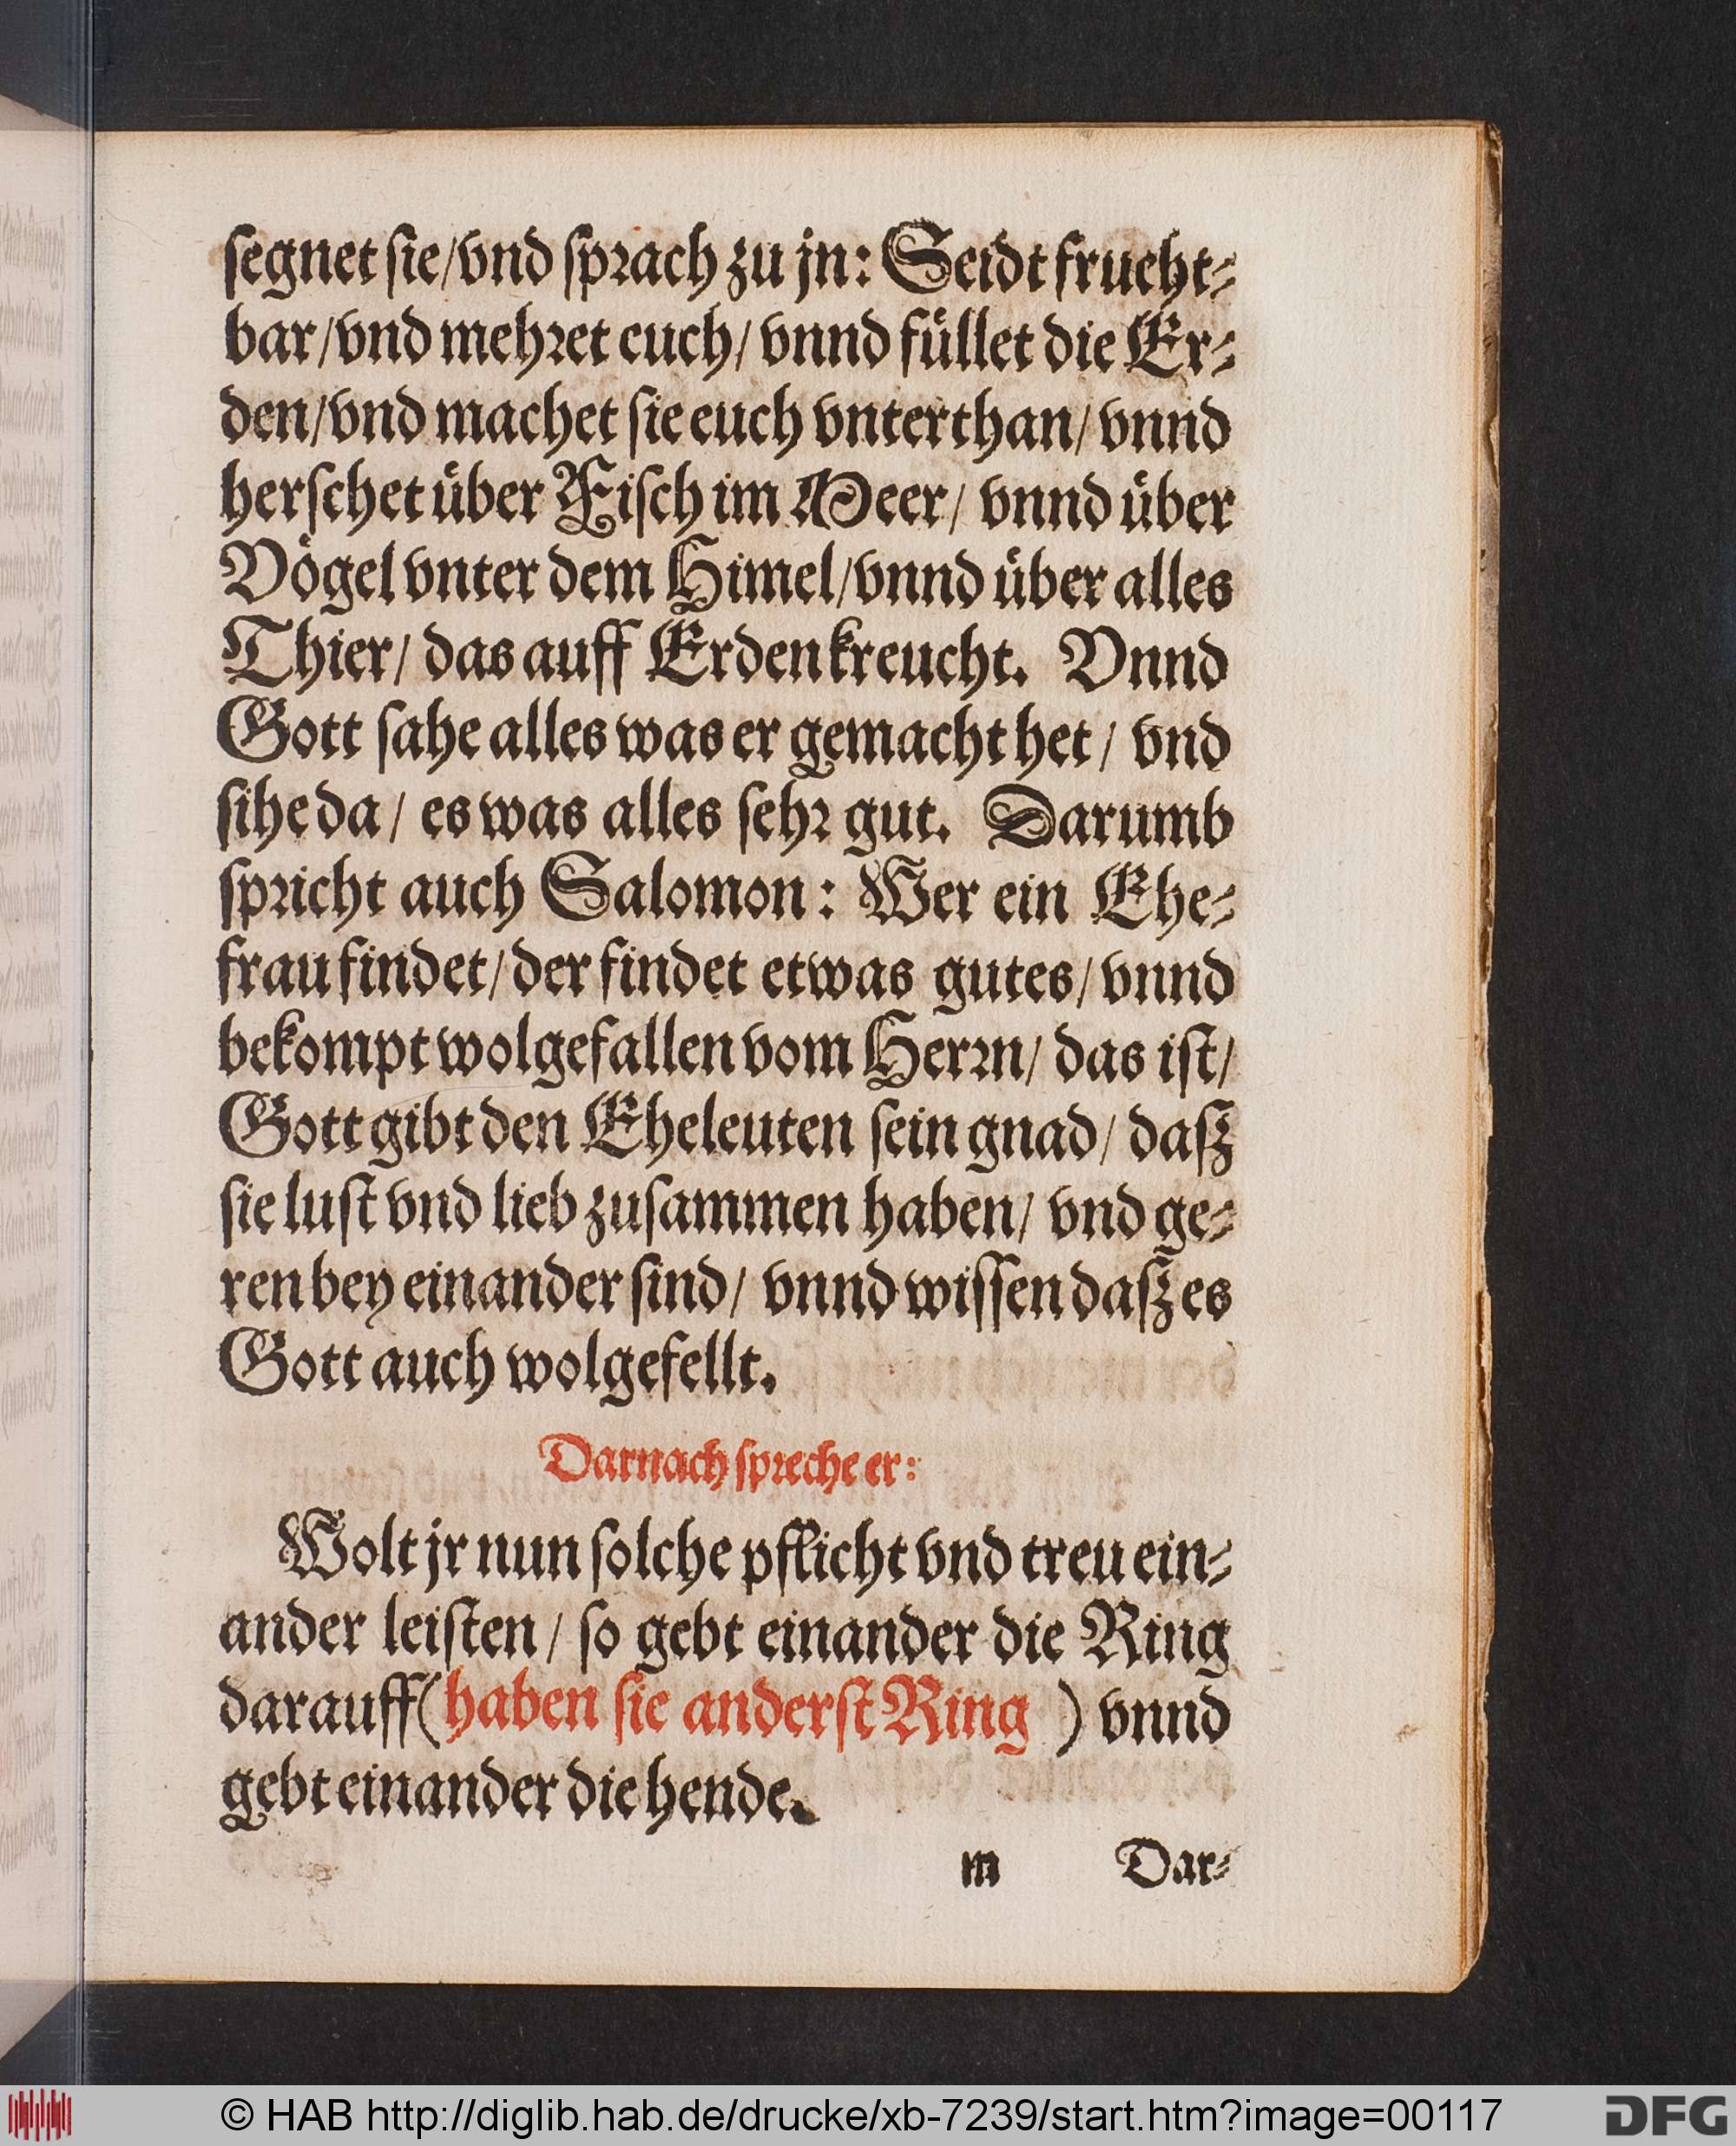 segnet sie/vnd sprach zu jn: Seidt frucht-
bar/vnd mehret euch/ vnnd füllet die Er-
den/vnd machet sie euch vnterthan/ vnnd
herschet über Fisch im Meer/ vnnd über
Vögel vnter dem Himel/vnnd über alles
Thier/ das auff Erden kreucht. Vnnd
Gott sahe alles was er gemacht het/ vnd
sihe da/ es was alles sehr gut. Darumb
spricht auch Salomon: Wer ein Ehe-
frau findet/der findet etwas gutes/ vnnd
bekompt wolgefallen vom Herrn/ das ist/
Gott gibt den Eheleuten sein gnad/ daß
sie lust vnd lieb zusammen haben/ vnd ge-
ren bey einander sind/ vnnd wissen daß es
Gott auch wolgefellt.
Darnach spreche er:
Wolt jr nun solche pflicht vnd treu ein-
ander leisten/ so gebt einander die Ring
darauff (haben sie anderst Ring ) vnnd
gebt einander die hende.
m Dar-
© HAB http://diglib.hab.de/drucke/xb-7239/start.htm?image=00117
DFG